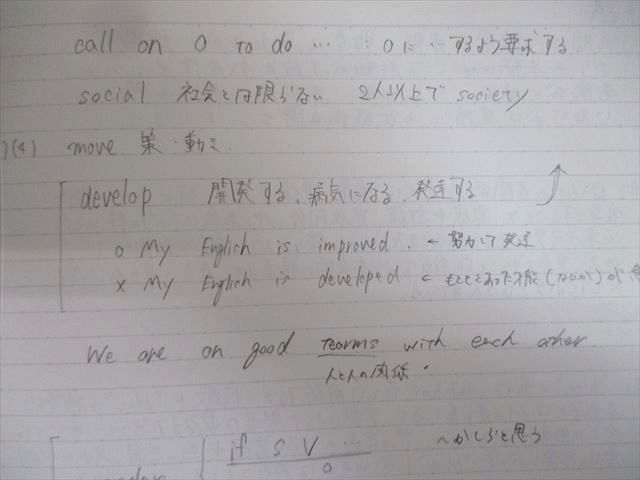 call on O to do … : Oに…するよう要求する
social 社会とは限らない 2人以上で society
)(4) move 策・動き
develop 開発する、病気になる、発達する
o My English is improved. ← 努力して発達
x My English is developed ← もともとあった才能(などが)が
We are on good tearms with each other.
人と人の関係・
if S V … ~かしらと思う
O